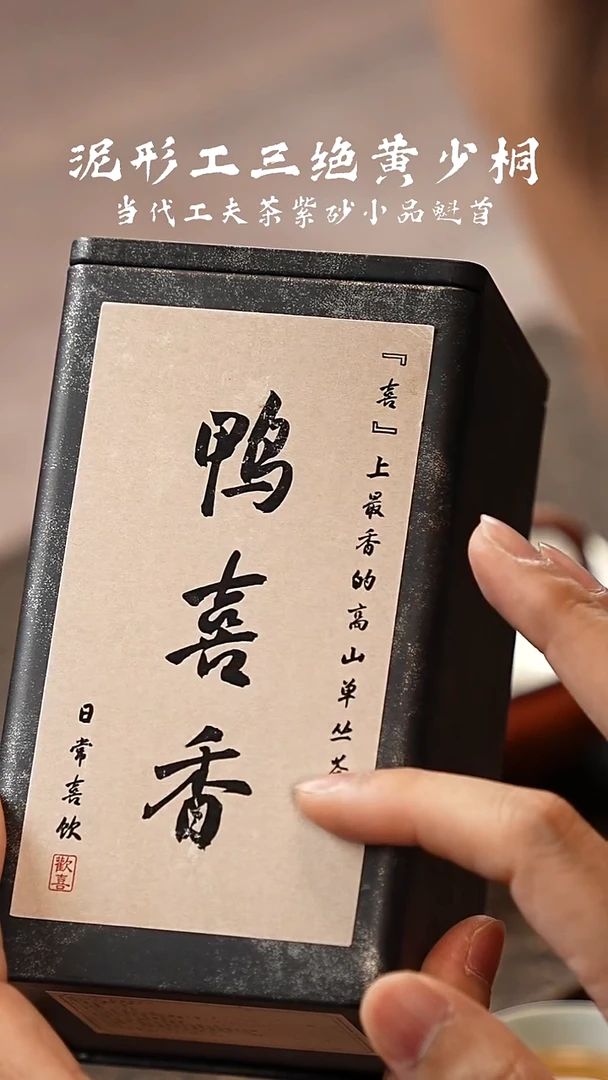 泥形工三绝黄少桐
当代工夫茶紫砂小品魁首
『喜』上最香的高山单丛茶
鸭喜香
日常喜饮
歡喜